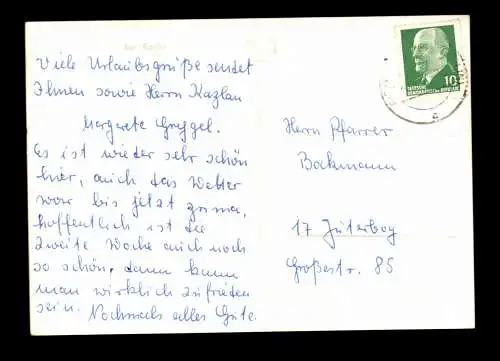 Viele Urlaubsgrüße sendet
Ihnen sowie Herrn Kazlau
Margarete Greggel.
Es ist wieder sehr schön
hier, auch das Wetter
war bis jetzt prima,
hoffentlich ist die
zweite Woche auch noch
so schön, dann kann
man wirklich zufrieden
sein. Nochmals alles Gute.
10
DEUTSCHE
DEMOKRATISCHE REPUBLIK
Herrn Pfarrer
Bockmann
17 Jüterbog
Großestr. 85